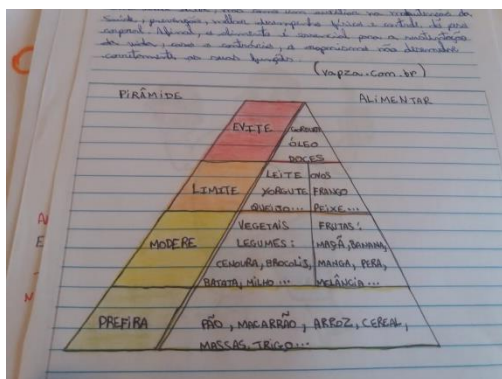 saúde, prevenção, melhor desempenho físico e controle de peso
corporal. Afinal, o alimento é essencial para a manutenção
da vida, caso o contrário, o organismo não desenvolve
corretamente as suas funções.
(vapza.com.br)
PIRÂMIDE ALIMENTAR
EVITE
GORDURA
ÓLEO
DOCES
LIMITE
LEITE
YORGUTE
QUEIJO...
OVOS
FRANGO
PEIXE...
MODERE
VEGETAIS
LEGUMES:
CENOURA, BROCOLIS,
BATATA, MILHO...
FRUTAS:
MAÇÃ, BANANA,
MANGA, PERA,
MELÂNCIA...
PREFIRA
PÃO, MACARRÃO, ARROZ, CEREAL,
MASSAS, TRIGO...